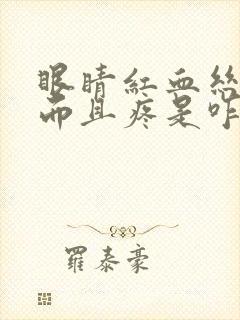 眼睛紅血絲
而且疼是咋
羅泰豪